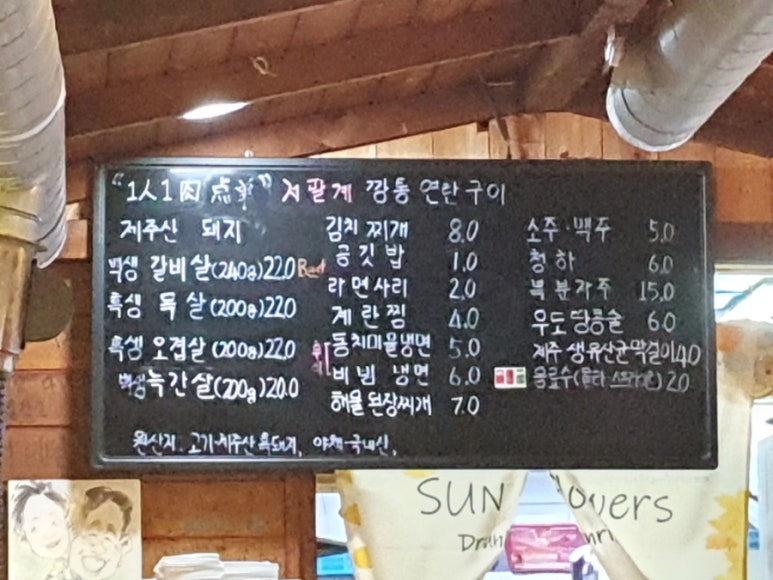 "1人1肉 点单" 저팔계 깡통 연탄구이
제주산 돼지
백생 갈비살(240g)22.0 Best
흑생 목살(200g)22.0
흑생 오겹살(200g)22.0
백생 늑간살(200g)20.0
김치찌개 8.0
공깃밥 1.0
라면사리 2.0
계란찜 4.0
동치미물냉면 5.0
비빔 냉면 6.0
해물된장찌개 7.0
소주·맥주 5.0
청하 6.0
복분자주 15.0
우도땅콩술 6.0
제주 생유산균막걸이 4.0
음료수(콜라·스프라이트) 2.0
원산지. 고기-제주산 흑돼지, 야채-국내산.
SUN flovers